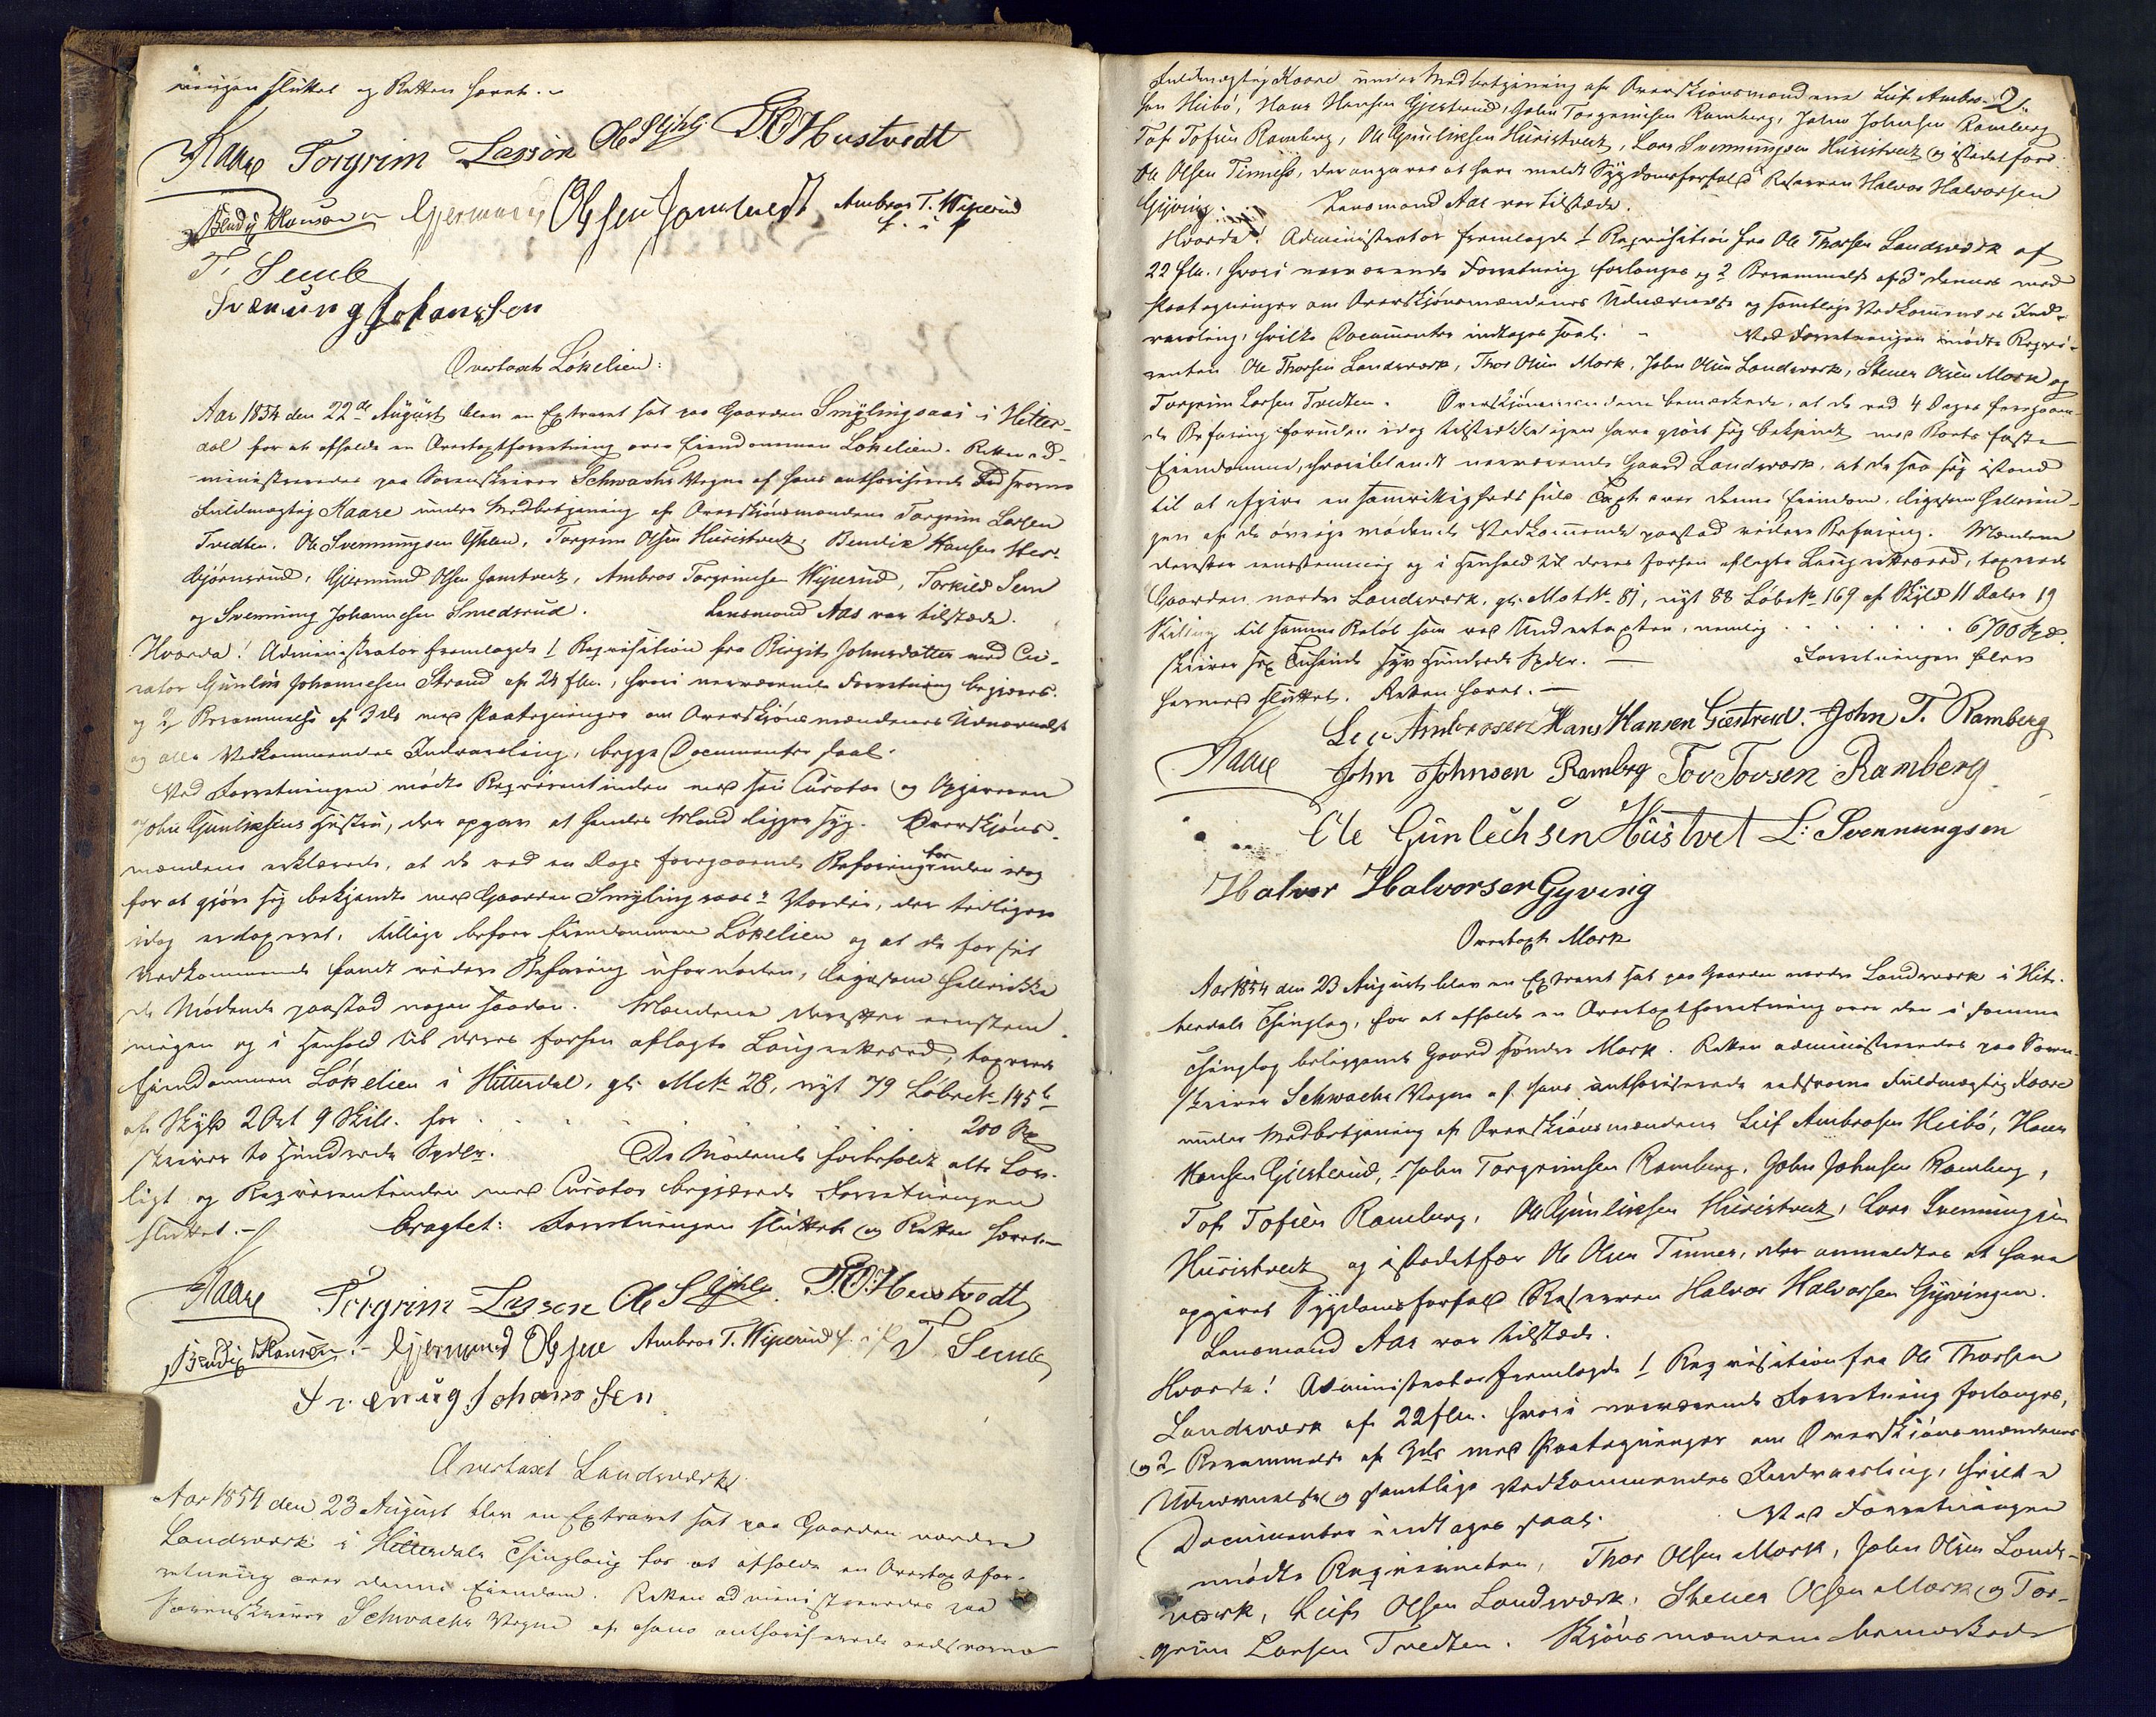 ningen sluttet og Retten hævet.
Kaare Torgrim Lassøn Ole S Yhle T O Hustvedt
Bendix Hansen Gjermund Olssen Jamtvedt Ambros T. Wiperud
T. Semb
Svenung Johanssen
Overtaxt Lökelien:
Aar 1854 den 22de August blev en Extraret sat paa Gaarden Smylingsaas i Hitter-
dal for at afholde en Overtaxtforretning over Eiendommen Lökelien. Retten ad-
ministreredes paa Sorenskriver Schwachs Vegne af hans authoriserede Edsvorne
Fuldmægtig Kaare under Medbetjening af Overskjönsmændene Torgrim Larsen
Tvedten, Ole Svennungsen Yhlen, Torgrim Olsen Huustvedt, Bendix Hansen
Bjørnerud, Gjermund Olsen Jamtvedt, Ambros Torgrimsen Wiperud, Torkild Sem
og Svennung Johannesen Smedsrud. Lensmand Aas var tilstæde.
Hvorda! Administrator fremlagde 1 Reqvisition fra Birgith Johnsdatter med Cu-
rator Gunlik Johannesen Strand af 24 f.M., hvori nærværende Forretning begjæres.
og 2 Berammelse af 3 ds med Paategninger om Overskjönsmændenes Udnævnelse
og alle Vedkommendes Indvarsling, begge Documenter saal.
Ved Forretningen mödte Reqvirentinden med sin Curator og Opgiveren
John Gunliksens Hustru, der opgav at hendes Mand ligger syg. Overskjöns-
mændene erklærede, at de ved en Dags foregaaende Befaring foruden idag
for at gjöre sig bekjendt med Gaarden Smylingsaas's Værdie, der tidligere
idag er taxeret, tillige befoer Eiendommen Lökelien og at de for sit
Vedkommende fandt videre Befaring ufornöden, ligesom hellerikke
de Mödende paastod nogen saadan. Mændene derefter eenstem-
migen og i Henhold til deres forhen aflagte Laugretteseed, taxerede
Eiendommen Lökelien i Hitterdal, gl. Mtr No 28, nyt 79 Löbe No 145b
af Skyld 2 Ort 9 Skill. for . . . . 200 Spd
skriver to Hundrede Spdlr. De Mödende forbeholdt alt Lov-
ligt og Reqvirentinden med Curator begjærede Forretningen
sluttet. bragtet: Forretningen sluttet og Retten hævet.
Kaare Torgrim Lassøn Ole S Yhle T. O. Hustvedt
Bendix Hansen Gjermund Olssen Ambros T. Wiperud T Semb
Svenung Johanssen
Overtaxt Landsværk
Aar 1854 den 23 August blev en Extraret sat paa Gaarden nordre
Landsværk i Hitterdals Thinglaug for at afholde en Overtaxtfor-
retning over denne Eiendom. Retten administreredes paa
Sorenskriver Schwachs Vegne af hans authoriserede edsvorne
2.
Fuldmægtig Kaare under Medbetjening af Overskjönsmændene Leif Ambro-
sen Heibö, Hans Hansen Gjestrud, John Torgrimsen Ramberg, John Johnsen Ramberg
Tof Tofsen Ramberg, Ole Gunliksen Huustvedt, Lars Svennungsen Huustvedt og istedetfor
Ole Olsen Tinness, der angaves at have meldt Sygdomsforfald Reserven Halvor Halvorsen
Gyving. Lensmand Aas var tilstæde.
Hvorda! Administrator fremlagde 1 Reqvisition fra Ole Thorsen Landsværk af
22 f.M., hvori nærværende Forretning forlanges og 2 Berammelse af 3 dennes med
Paategninger om Overskjönsmændenes Udnævnelse og samtlige Vedkommendes Ind-
varsling, hvilke Documenter indtages saal. Ved Forretningen mödte Reqvi-
renten Ole Thorsen Landsværk, Thor Olsen Mork, John Olsen Landsværk, Stener Olsen Mork og
Torgrim Larsen Tvedten. Overskjönsmændene bemærkede, at de ved 4 Dages foregaaen-
de Befaring foruden idag tilstrækkeligen have gjort sig bekjendt med
Eiendomme, hvoriblandt nærværende Gaard Landsværk, at de saa sig istand
til at afgive en samvittighedsfuld Taxt over denne Eiendom, ligesom hellerin-
gen af de övrige mödende Vedkommende paastod videre Befaring. Mændene
derefter eenstemmig og i Henhold til deres forhen aflagte Laugretteseed, taxerede
Gaarden nordre Landsværk, gl. Mat No 81, nyt 88 Löbe No 169 af Skyld 11 Daler 19
Skilling til samme Beløb som ved Undertaxten, nemlig . . . . 6700 Spd.
skriver sex Tusinde syv Hundrede Spdlr. Forretningen blev
hermed sluttet. Retten hævet.
Kaare Leif Ambrosen Hans Hansen Giestrud. John T. Ramberg
John Johnsen Ramberg Tov Tovsen Ramberg
Ole Günlechsen Hüstvet L: Svennungsen
Halvor Halvorsen Gyving
Overtaxt Mork
Aar 1854 den 23 August blev en Extraret sat paa Gaarden nordre Landsværk i Hit-
terdals Thinglag, for at afholde en Overtaxtforretning over den i samme
Thinglag beliggende Gaard söndre Mork. Retten administreredes paa Soren-
skriver Schwachs Vegne af hans authoriserede edsvorne Fuldmægtig Kaare
under Medbetjening af Overskjönsmændene Leif Ambrosen Heibö, Hans
Hansen Gjestrud, John Torgrimsen Ramberg, John Johnsen Ramberg,
Tof Tofsen Ramberg, Ole Gunliksen Huustvedt, Lars Svennungsen
Huustvedt og istedetfor Ole Olsen Tinnes, der anmeldtes at have
opgivet Sygdomsforfald Reserven Halvor Halvorsen Gyvingen.
Lensmand Aas var tilstæde.
Hvorda! Administrator fremlagde 1 Reqvisition fra Ole Thorsen
Landsværk af 22 f.M. hvori nærværende Forretning forlanges,
og 2 Berammelse af 3 ds med Paategninger om Overskjönsmændenes
Udnævnelse og samtlige Vedkommendes Indvarsling, hvilke
Documenter indtages saal. Ved Forretningen
mödte Reqvirenten, Thor Olsen Mork, John Olsen Lands-
værk, Leif Olsen Landsværk, Stener Olsen Mork og Tor-
grim Larsen Tvedten. Skjönsmændene bemærkede